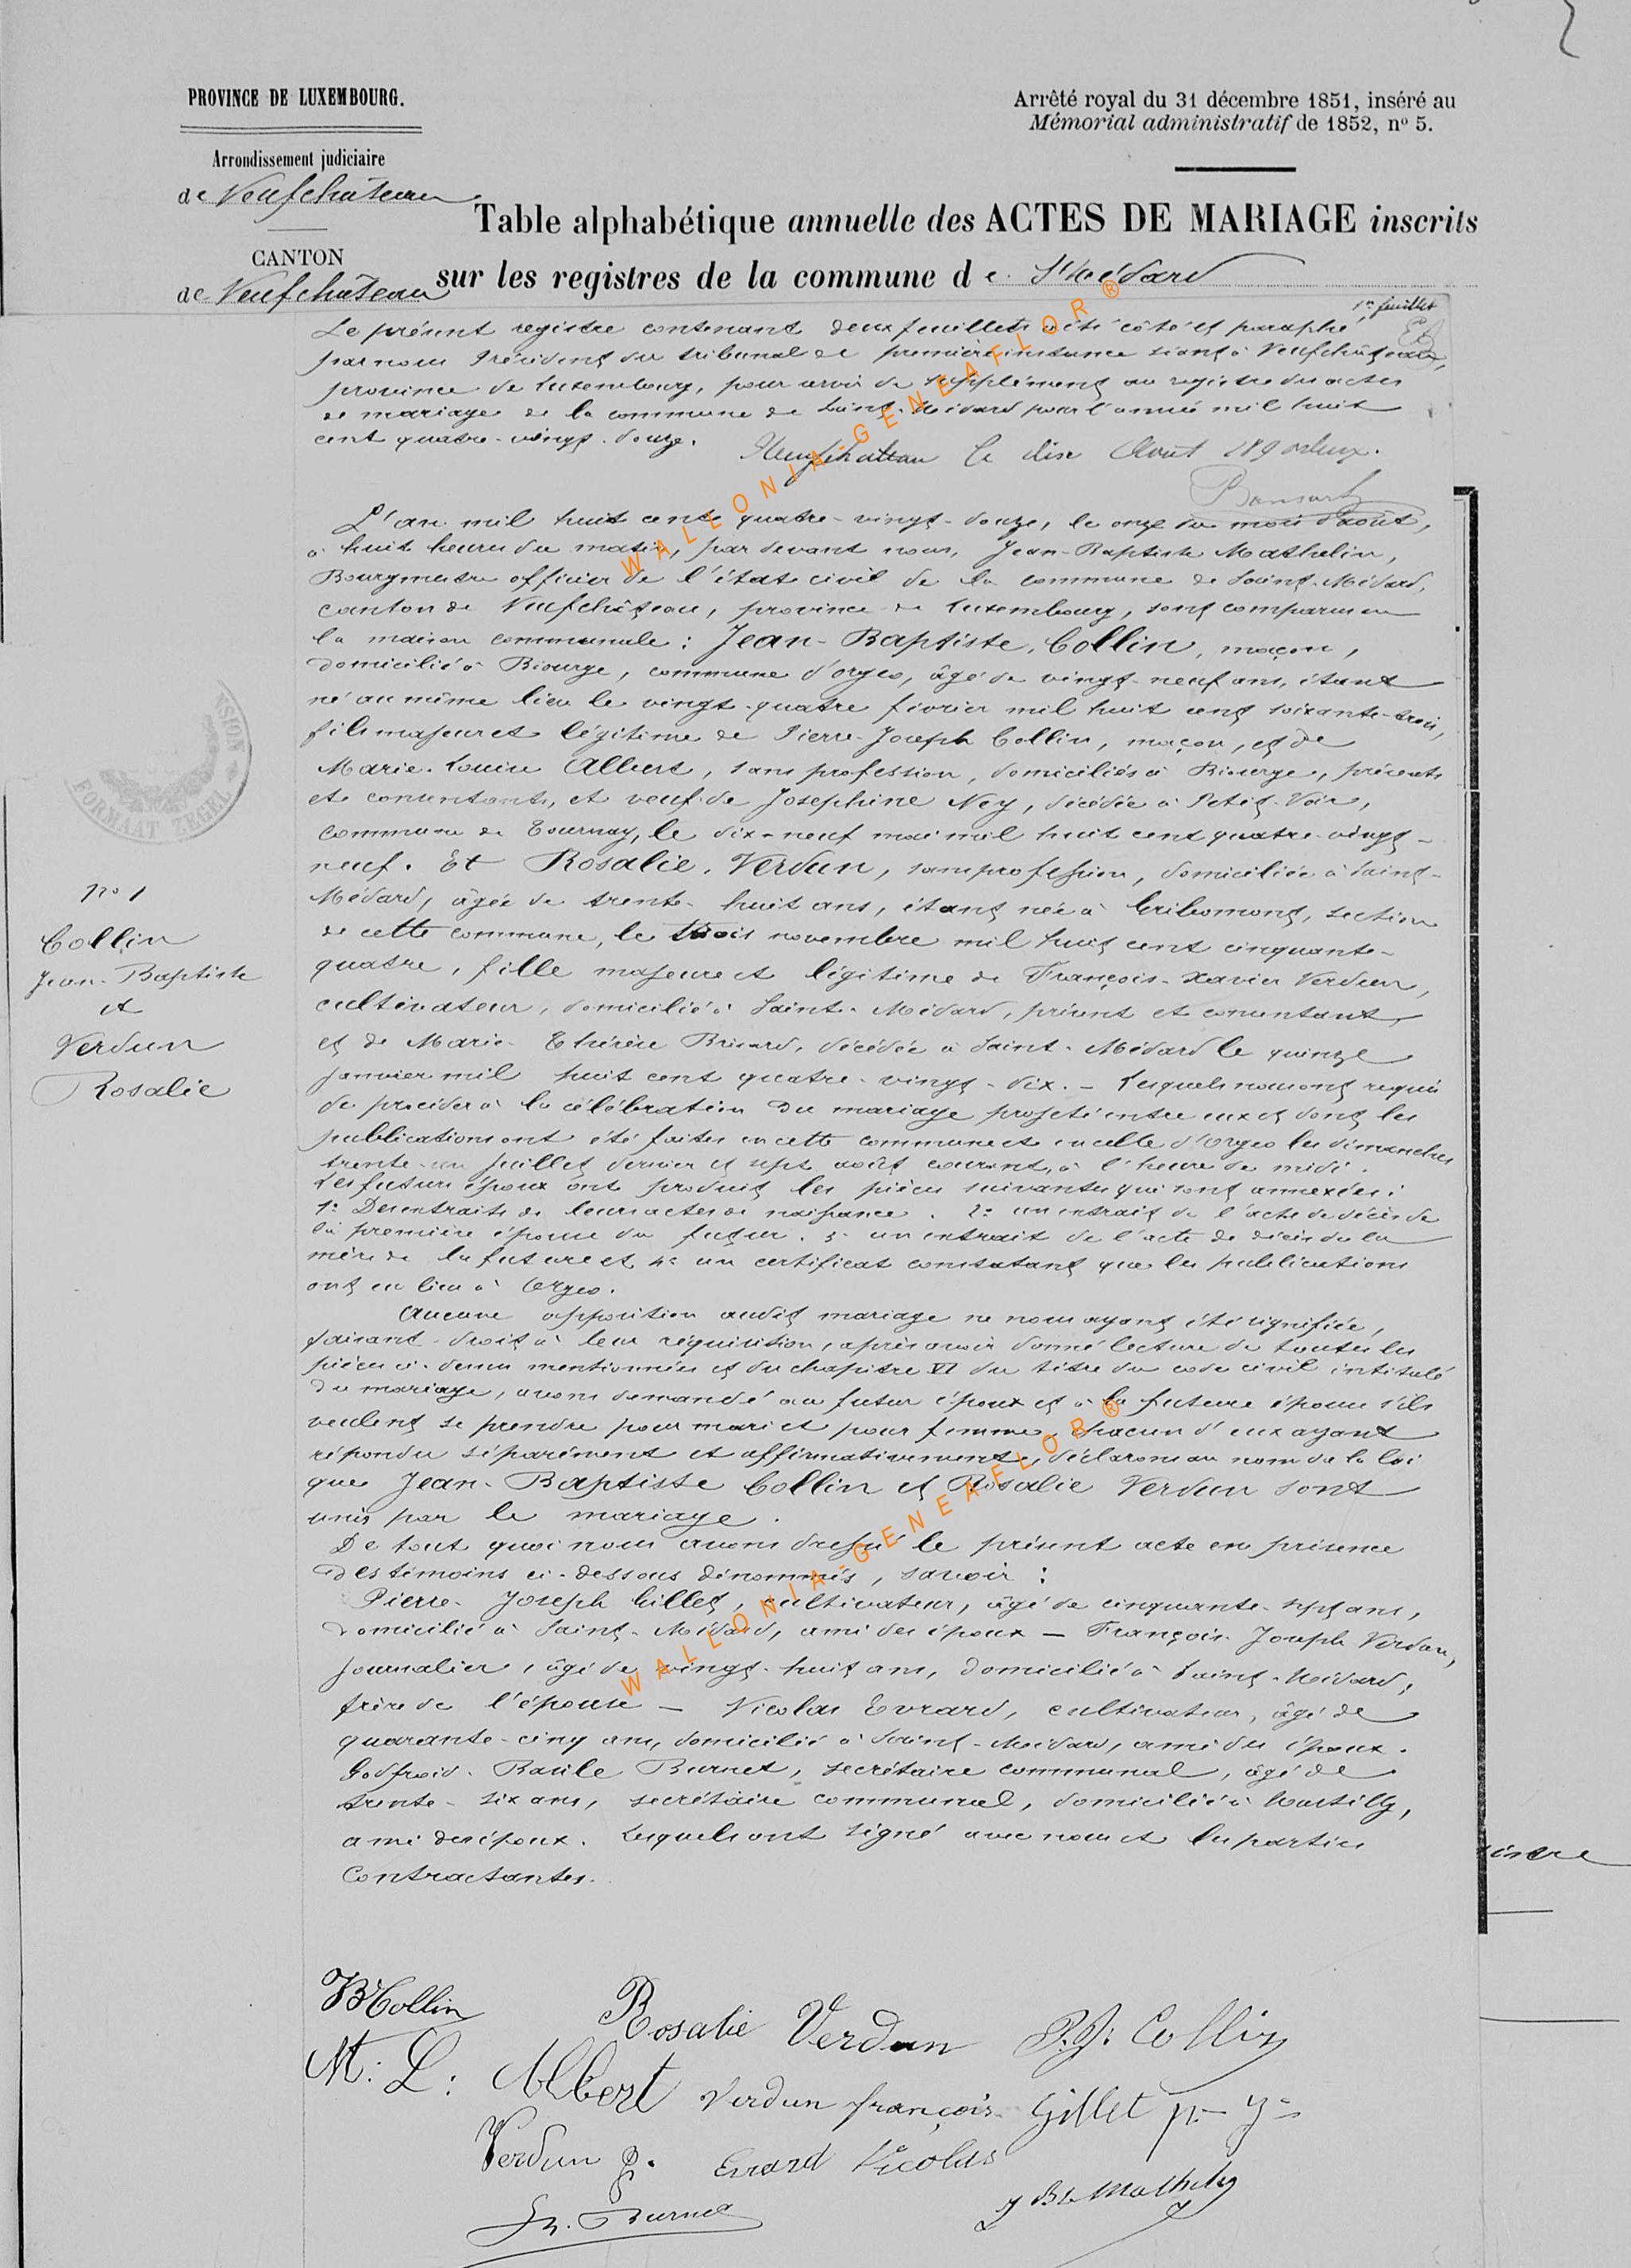 PROVINCE DE LUXEMBOURG.
Arrêté royal du 31 décembre 1851, inséré au
Mémorial administratif de 1852, nº 5.
Arrondissement judiciaire
de Neufchâteau
Table alphabétique annuelle des ACTES DE MARIAGE inscrits
CANTON
de Neufchâteau
sur les registres de la commune de St Médard
1er feuillet
Le présent registre contenant deux feuillets a été côté et paraphé
par nous Président du tribunal de première instance séant à Neufchâteau,
province de Luxembourg, pour servir de supplément au registre des actes
de mariage de la commune de Saint-Médard pour l'année mil huit
cent quatre-vingt-douze.
Neufchâteau le dix Août 189 deux.
L'an mil huit cent quatre-vingt-douze, le onze du mois d'août,
à huit heures du matin, par devant nous, Jean-Baptiste Mathelin,
Bourgmestre officier de l'état civil de la commune de Saint-Médard,
canton de Neufchâteau, province de Luxembourg, sont comparus en
la maison communale : Jean-Baptiste Collin, maçon,
domicilié à Biourge, commune d'orgeo, âgé de vingt-neuf ans, étant
né au même lieu le vingt-quatre février mil huit cent soixante-trois,
fils majeur et légitime de Pierre-Joseph Collin, maçon, et de
Marie-Louise Albert, sans profession, domiciliés à Biourge, présents
et consentants, et veuf de Joséphine Ney, décédée à Petit-Voir,
commune de Tournay, le dix-neuf mai mil huit cent quatre-vingt-
neuf. Et Rosalie Verdun, sans profession, domiciliée à Saint-
Médard, âgée de trente-huit ans, étant née à Gribomont, section
de cette commune, le trois novembre mil huit cent cinquante-
quatre, fille majeure et légitime de François-Xavier Verdun,
cultivateur, domicilié à Saint-Médard, présent et consentant,
et de Marie-Thérèse Brisard, décédée à Saint-Médard le quinze
janvier mil huit cent quatre-vingt-dix. – Lesquels nous ont requis
de procéder à la célébration du mariage projeté entre eux et dont les
publications ont été faites en cette commune et en celle d'Orgeo les dimanches
trente-un juillet dernier et sept août courant, à l'heure de midi.
Les futurs époux ont produit les pièces suivantes qui sont annexées :
1º Des extraits de leurs actes de naissance. 2º un extrait de l'acte de décès de
la première épouse du futur. 3º un extrait de l'acte de décès de la
mère de la future et 4º un certificat constatant que les publications
ont eu lieu à Orgeo.
Aucune opposition audit mariage ne nous ayant été signifiée,
faisant droit à leur réquisition, après avoir donné lecture de toutes les
pièces ci-dessus mentionnées et du chapitre VI du titre du code civil intitulé
du mariage, avons demandé au futur époux et à la future épouse s'ils
veulent se prendre pour mari et pour femme, chacun d'eux ayant
répondu séparément et affirmativement, déclarons au nom de la loi
que Jean-Baptiste Collin et Rosalie Verdun sont
unis par le mariage.
De tout quoi nous avons dressé le présent acte en présence
des témoins ci-dessous dénommés, savoir :
Pierre-Joseph Gillet, cultivateur, âgé de cinquante-sept ans,
domicilié à Saint-Médard, ami des époux – François-Joseph Verdun,
journalier, âgé de vingt-huit ans, domicilié à Saint-Médard,
frère de l'épouse – Nicolas Evrard, cultivateur, âgé de
quarante-cinq ans, domicilié à Saint-Médard, ami des époux.
Godfroid-Basile Burnet, secrétaire communal, âgé de
trente-six ans, secrétaire communal, domicilié à
ami des époux. Lesquels ont signé avec nous et les parties
contractantes.
nº 1
Collin
Jean-Baptiste
et
Verdun
Rosalie
JB Collin
Rosalie Verdun
P.J. Collin
M: L: Albert
Verdun françois
Gillet p-j-
Verdun
Evrard Nicolas
Burnet
J Bte Mathelin
FORMAAT ZEGEL
WALLONIA-GENEAFLOR®
WALLONIA-GENEAFLOR®